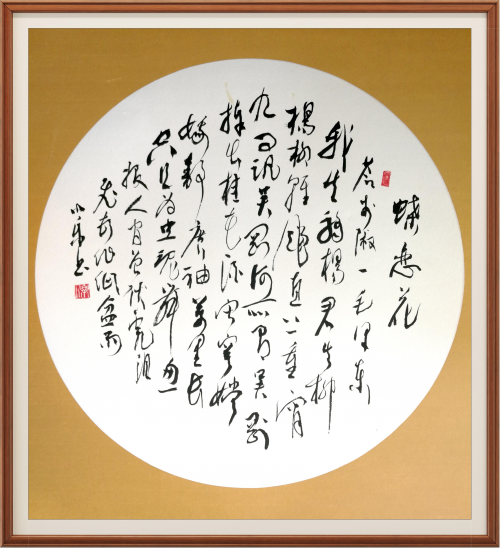 蝶恋花
答李淑一毛泽东
我失骄杨君失柳
杨柳轻飏直上重霄
九问讯吴刚何所有吴刚
捧出桂花酒寂寞嫦
娥舒广袖万里长
空且为忠魂舞忽
报人间曾伏虎泪
飞顿作倾盆雨
书